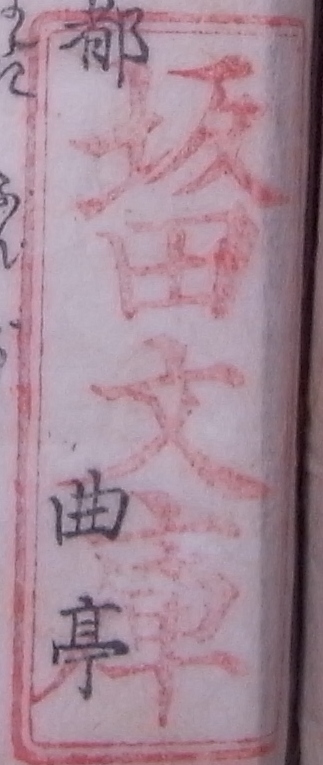 坂田文庫
都
曲亭